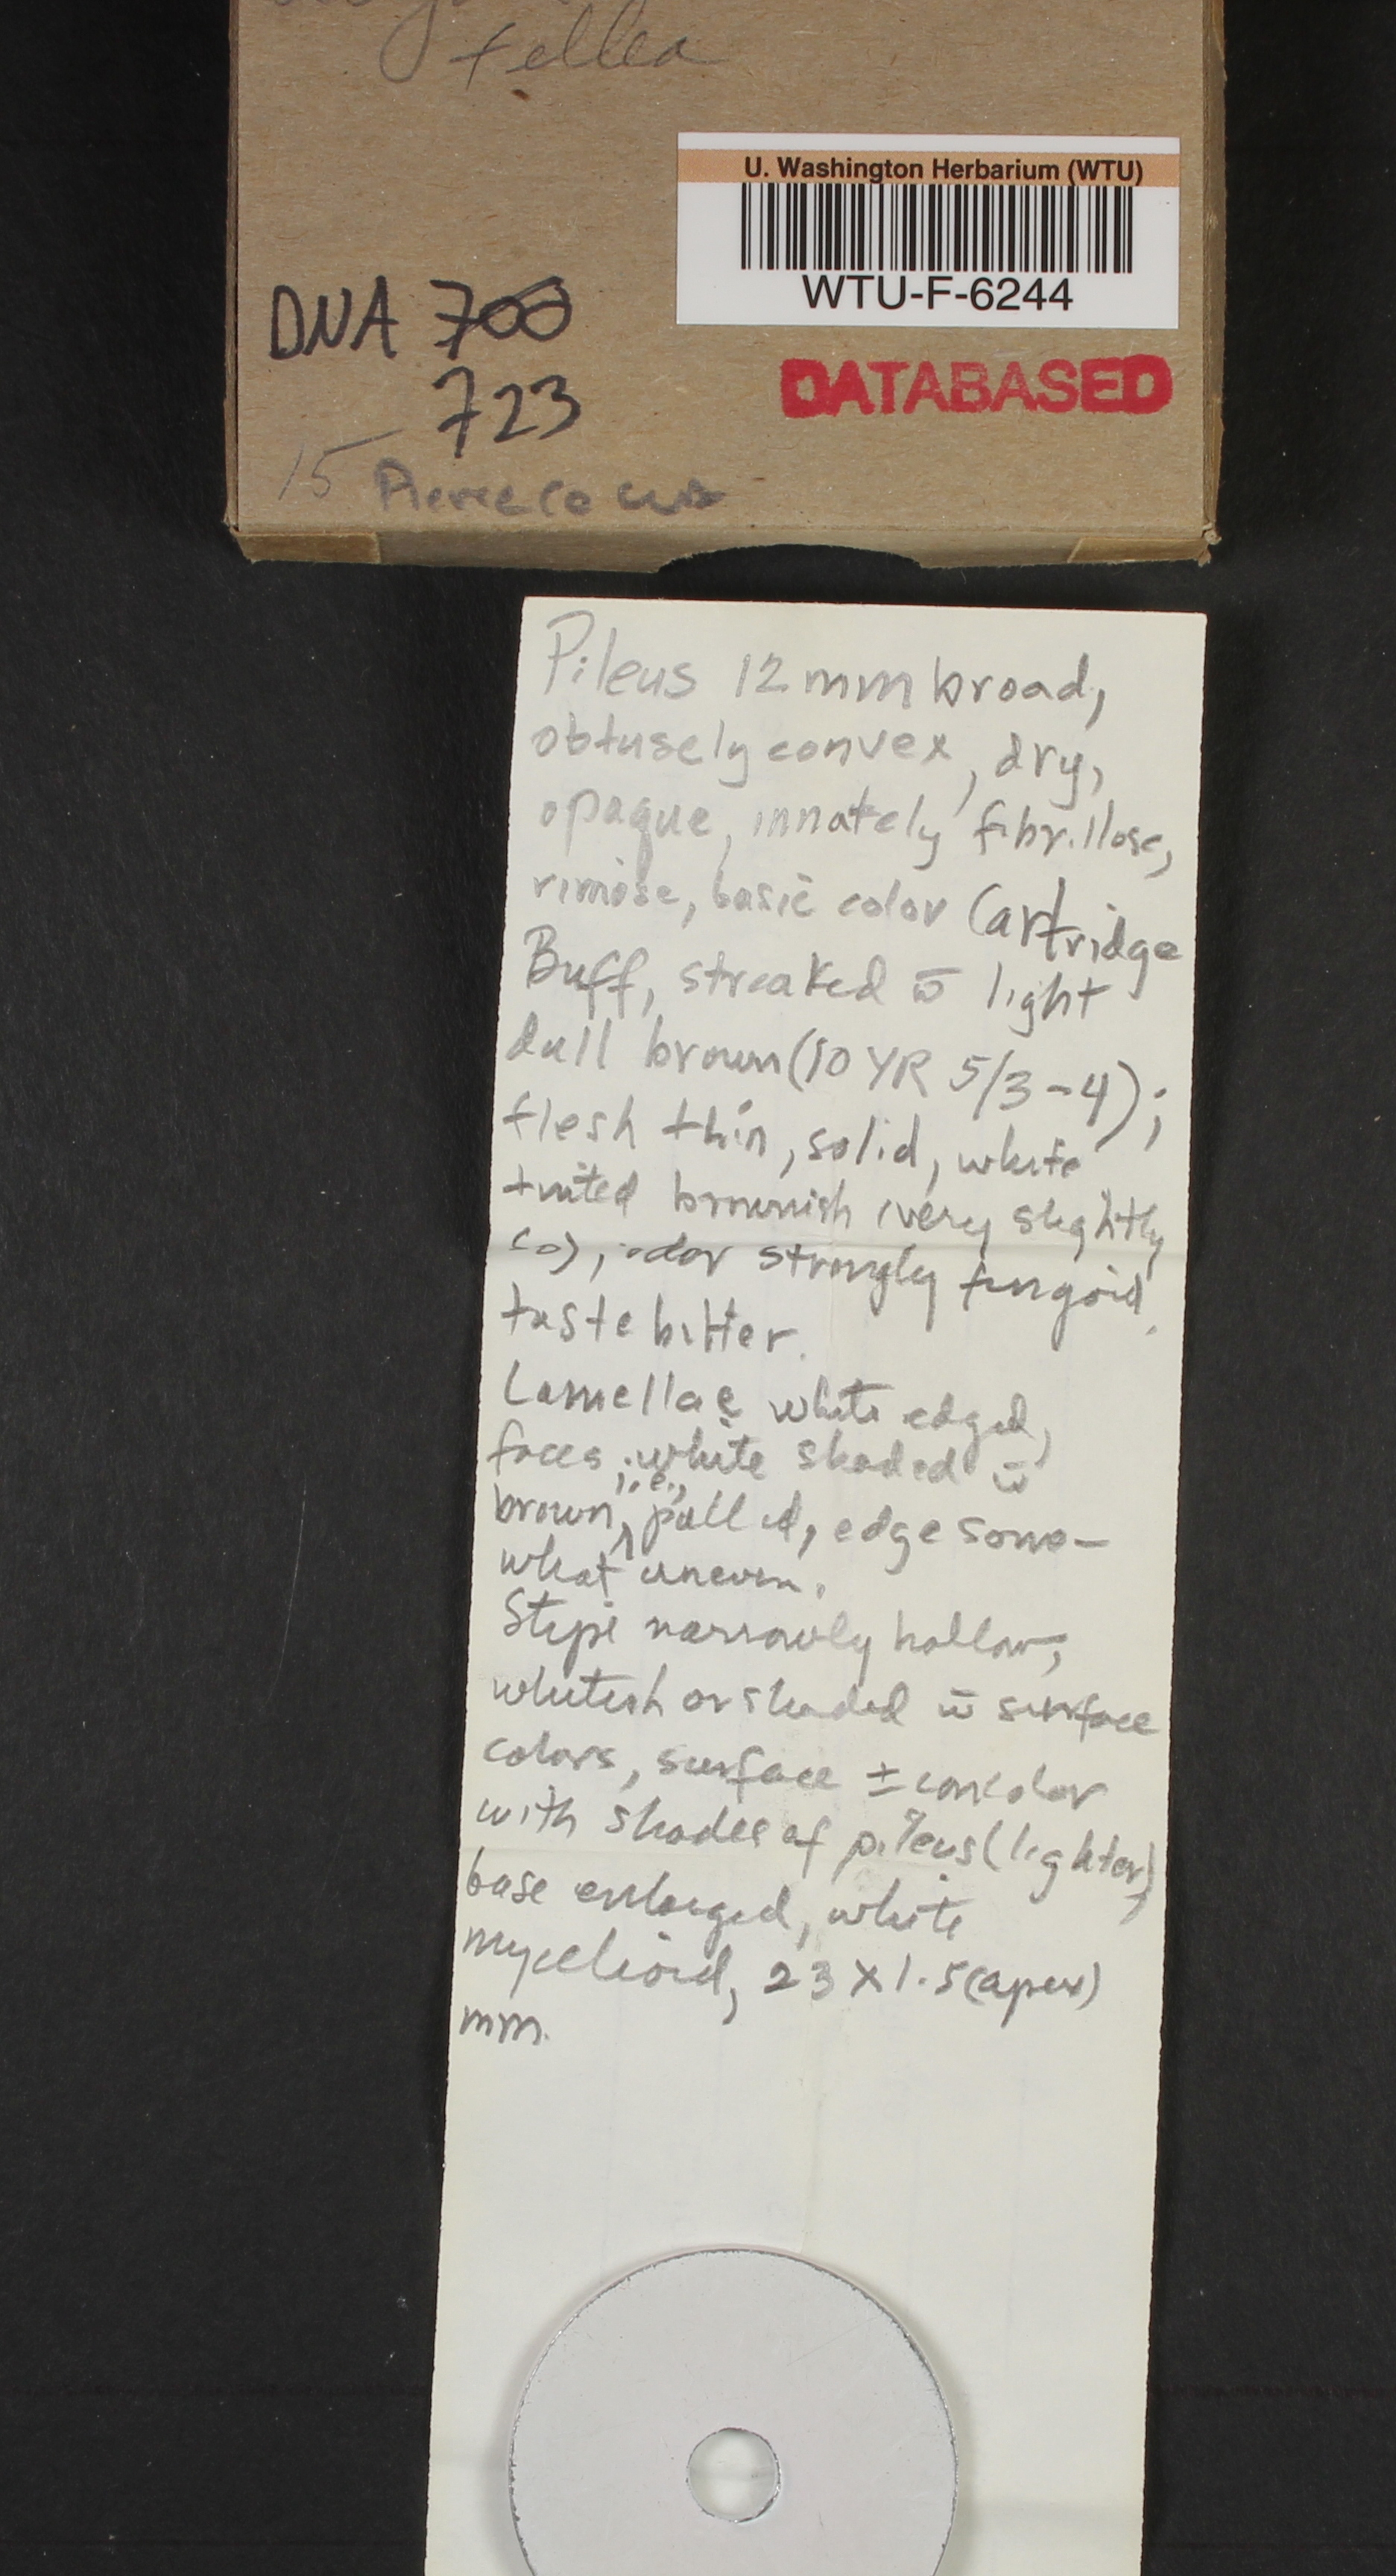 fellea
U. Washington Herbarium (WTU)
WTU-F-6244
DNA 700
723
DATABASED
15 Pierce Co
Pileus 12 mm broad,
obtusely convex, dry,
opaque, innately fibrillose,
rimose, basic color Cartridge
Buff, streaked w̄ light
dull brown (10 YR 5/3-4);
flesh thin, solid, white
tinted brownish (very slightly
so), odor strongly fungoid,
taste bitter.
Lamellae white edged,
faces white shaded w̄
brown, i.e., pallid, edge some-
what uneven.
Stipe narrowly hollow,
whitish or shaded w̄ surface
colors, surface ± concolor
with shades of pileus (lighter),
base enlarged, white
mycelioid, 23 X 1.5 (apex)
mm.